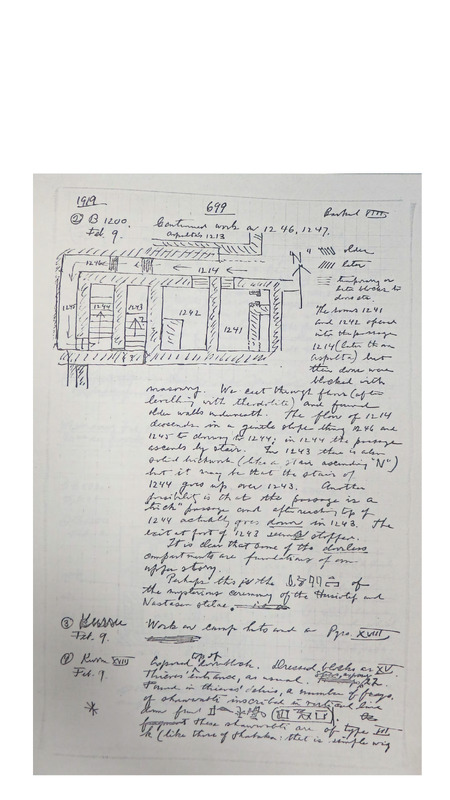 1919
699
Barkal VIII
② B 1200.
Feb. 9.
Continued work on 1246, 1247.
Aspelta's 1213
N
older
later
temporary or
late blocks to
doors etc.
1246
1214
1245
1244
1243
1242
1241
The rooms 1241
and 1242 opened
into the passage
1214 (later than
Aspelta) but
their doors were
blocked with
masonry. We cut through floor (after
levelling with theodolite) and found
older walls underneath. The floor of 1214
descends in a gentle slope along 1246 and
1245 to doorway to 1244; in 1244 the passage
ascends by stair. In 1243 there is also
solid brickwork (like a stair ascending "N")
but it may be that the stair of
1244 goes up over 1243. Another
possibility is that the passage is a
"trick" passage and after reaching top of
1244 actually goes down in 1243. The
exit at foot of 1243 seems stopped.
It is clear that some of the doorless
compartments are foundations of an
upper story.
Perhaps this is the of
the mysterious ceremony of the Harsiotef and
Nastasen stelae.
③ Kurru
Feb. 9.
Work on camp huts and on Pyr. XVIII
④ Kurru XVIII
Feb. 9
Exposed top of doorblock. Dressed blocks as XV.
Thieves' entrance, as usual.
Found in thieves' debris, a number of frags.
of shawabtis inscribed in vertical line
down front
these shawabtis are of type III
k (like those of Shabaka: that is simple wig